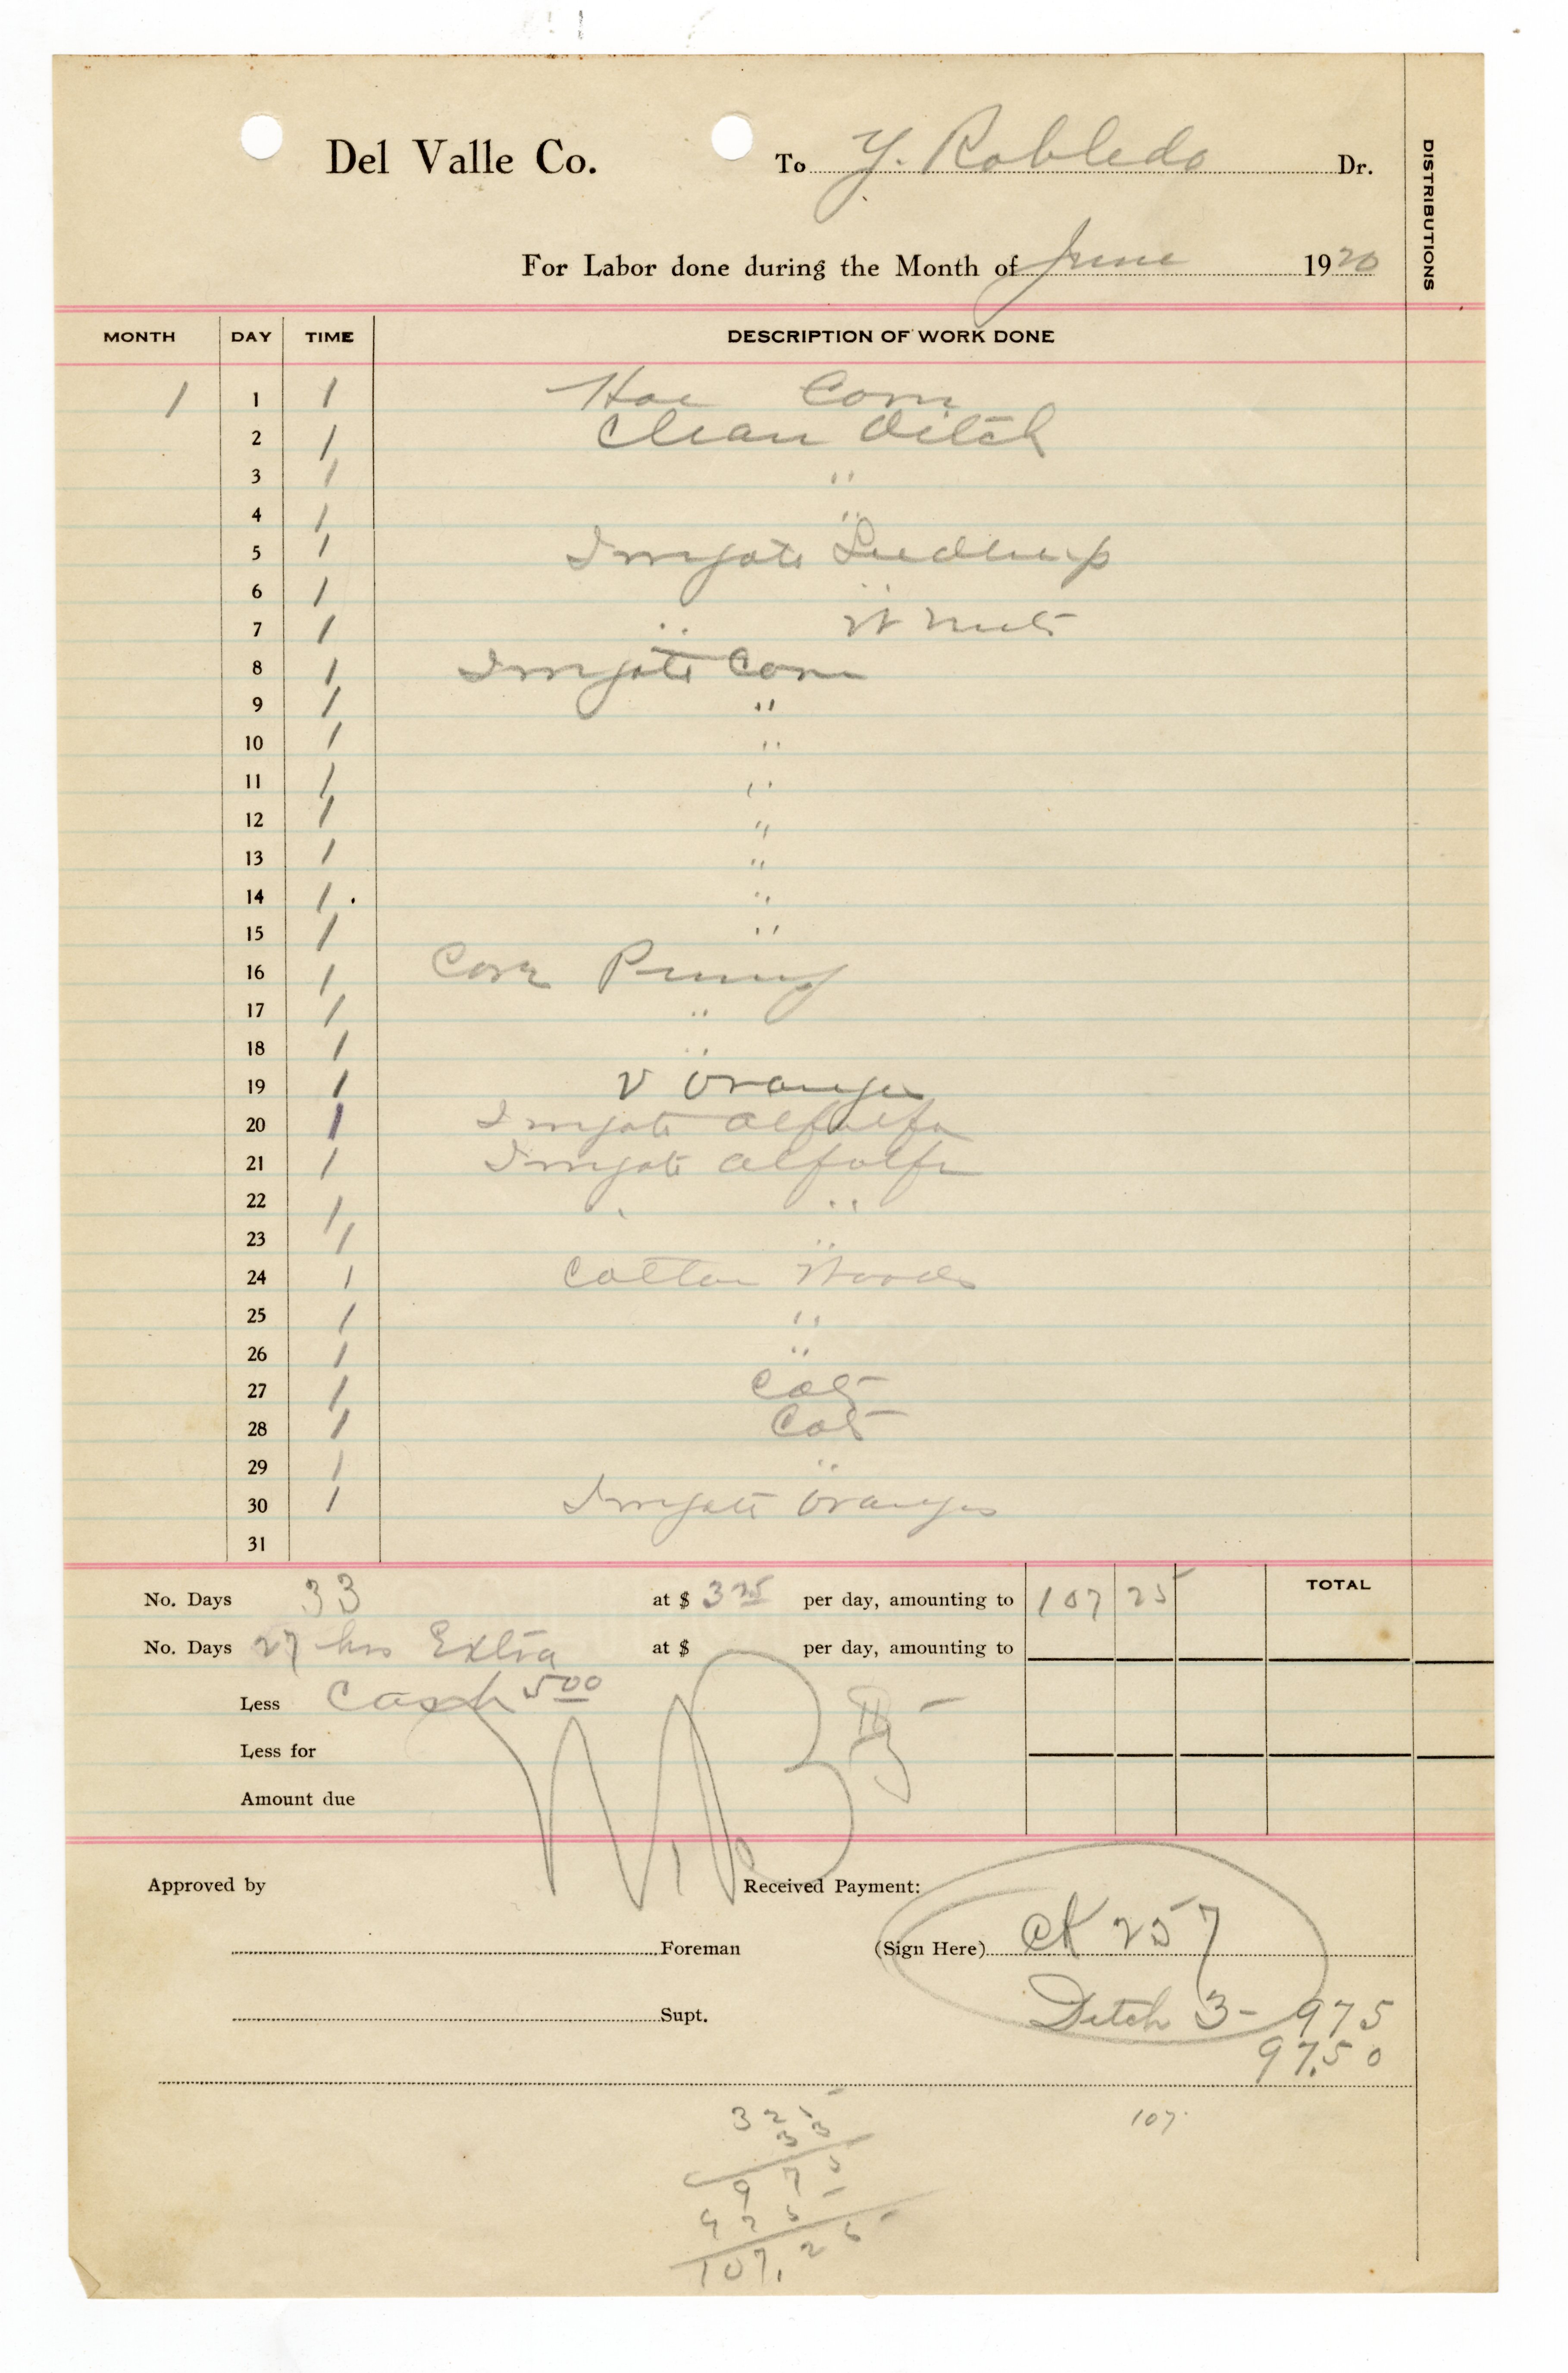 Del Valle Co. To Y. Robledo Dr.
DISTRIBUTIONS
For Labor done during the Month of June 1920
MONTH DAY TIME DESCRIPTION OF WORK DONE
1 1 1 Hoe Corn
2 1 Clean Ditch
3 1 "
4 1 "
5 1 Irrigate
6 1 "
7 1 " W Nuts
8 1 Irrigate Corn
9 1 "
10 1 "
11 1 "
12 1 "
13 1 "
14 1 "
15 1 "
16 1 Corn
17 1 "
18 1 "
19 1 V Oranges
20 1 Irrigate Alfalfa
21 1 Irrigate Alfalfa
22 1 " "
23 1 "
24 1 Cotton Woods
25 1 "
26 1 "
27 1 Cot
28 1 Cot
29 1 "
30 1 Irrigate Oranges
31
No. Days 33 at $ 3 25 per day, amounting to 107 25 TOTAL
No. Days 27 hrs Extra at $ per day, amounting to
Less Cash 5 00
Less for
Amount due
Approved by Received Payment:
Foreman (Sign Here) CK 257
Supt. Ditch 3 - 975
97.50
325
33
107
975
975
107.25